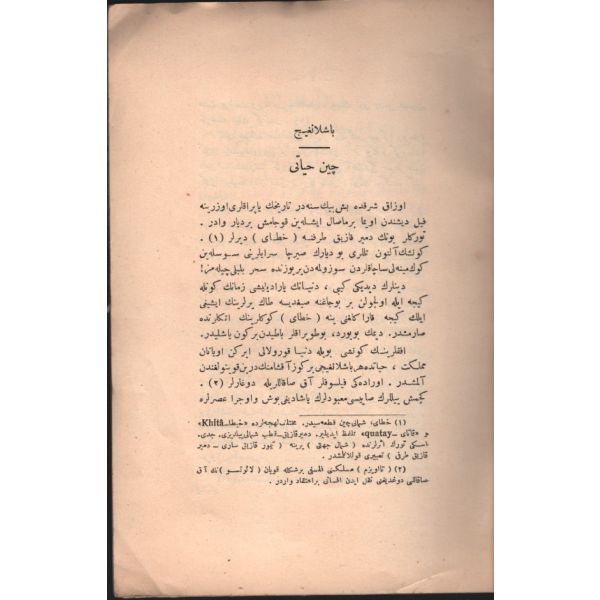 باشلانغیج
چین حیاتی
اوزاق شرقده بش بیك سنه در تاریخك یاپراقلری اوزرینه
فیل دیشندن اویما برماصال ایشله‌ین قوجامش بردیار واردر .
تورکلر بونك دمیر قازیق طرفنه ( خطای ) دیرلر (۱) .
کونشك آلتون تللری بو دیارك صیرچا سرایلرینی سوسله‌ین
کوك مینه‌لی ساچاقلردن سوزوله‌مدن بریوزنده سحر بلبلی چیله‌مز!
دینلرك دیدیکی کبی ، دنیانك یارادیلایشی زمانك کوندله
کیجه ایله اولچولن بر بوجاغنه صیغدیسه طاك یرلرینك ایشینی
ایلك کیجه قاراکلغی ینه ( خطای ) کوکلرینك اتکلرنده
صارمشدر . دیمك بویورد ، بوطوپراقلر باطیدن برکون یاشلیدر .
افقلرینك کونشی بویله دنیا قورولالی ایرکن اویانان
مملکت ، حیاتده هر باشلانغیجی برکوز آقشامنك درین قویتولغندن
آلمشدر . اوراده‌کی فیلسوفلر آق صاقاللریله دوغارلر (۲) .
کچمش ییللرك صاییسی معبودلرك یاشادیغی بوش واوجرا عصرلره
(۱) خطای، شمالی چین قطعه‌سیدر. مختلف لهجه‌لرده «خیطا‌ـ Khitâ»
و «قاتای ـ quatay» تلفظ ایدیلیر. دمیر قازیق ـ قطب شمالی ییلدیزی، جدی.
اسکی تورك اثرلرنده ( شمال جهتی ) یرینه ( تیمور قازیق ساری ـ دمیر
قازیق طرفی ) تعبیری قوللانلمشدر.
(۲) ( تائویزم ) مسلکنی فلسفی برشکله قویان ( لائوتسو ) نك آق
صاقاللی دوغدیغنی نقل ایدن افسانی براعتقاد واردر .